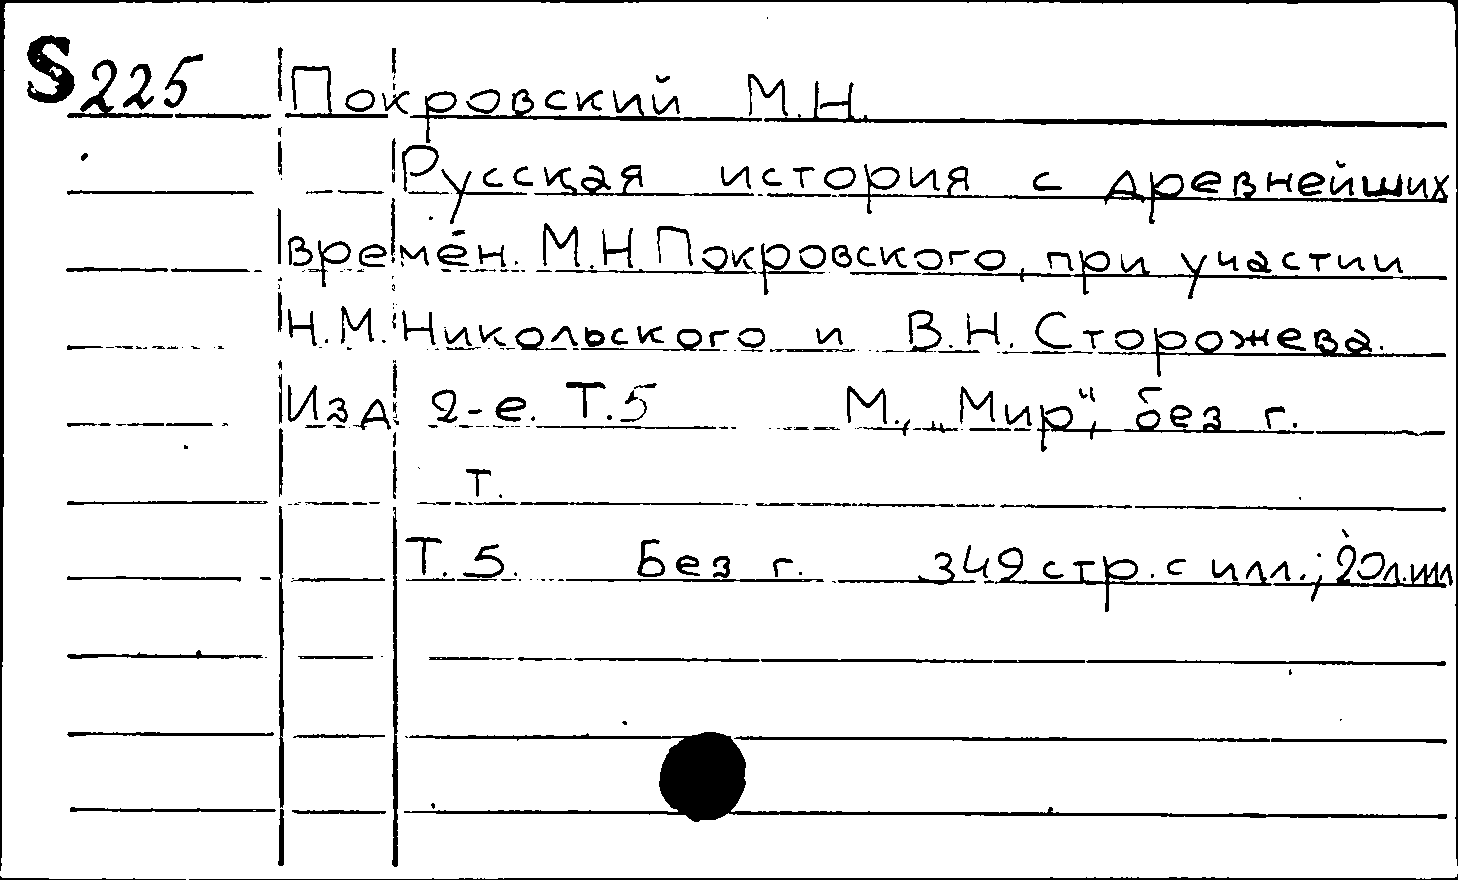 S225 Покровский М.Н.
Русская история с древнейших
времён. М.Н. Покровского, при участии
Н.М. Никольского и В.Н. Сторожева.
Изд 2-е. Т.5 М., „Мир“, без г.
т.
Т. 5. Без г. 349 стр. с илл.; 20 л. илл